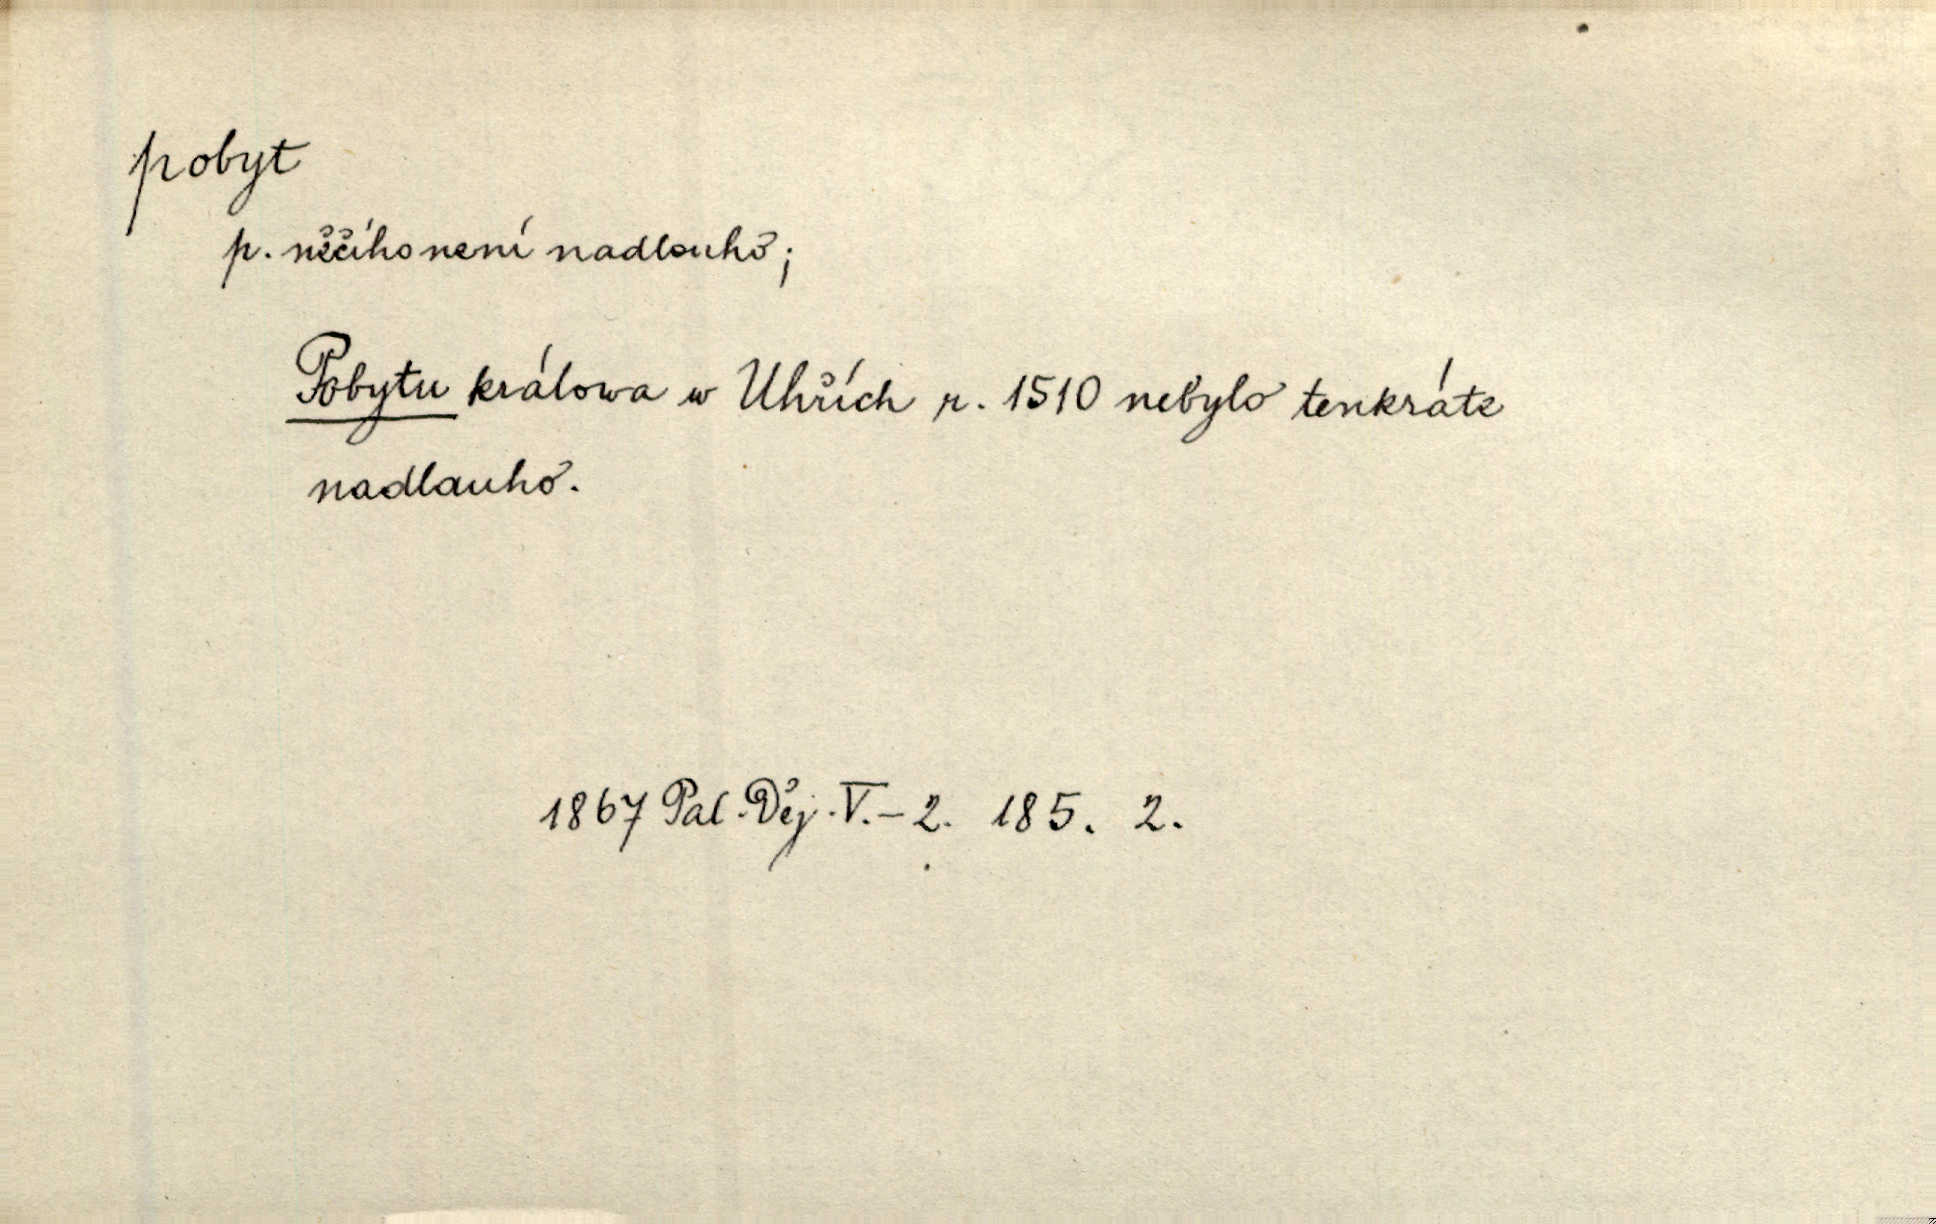 pobyt
p. něčího není nadlouho;
Pobytu králowa w Uhřích r. 1510 nebylo tenkráte
nadlauho.
1867 Pal. Děj. V.-2. 185. 2.